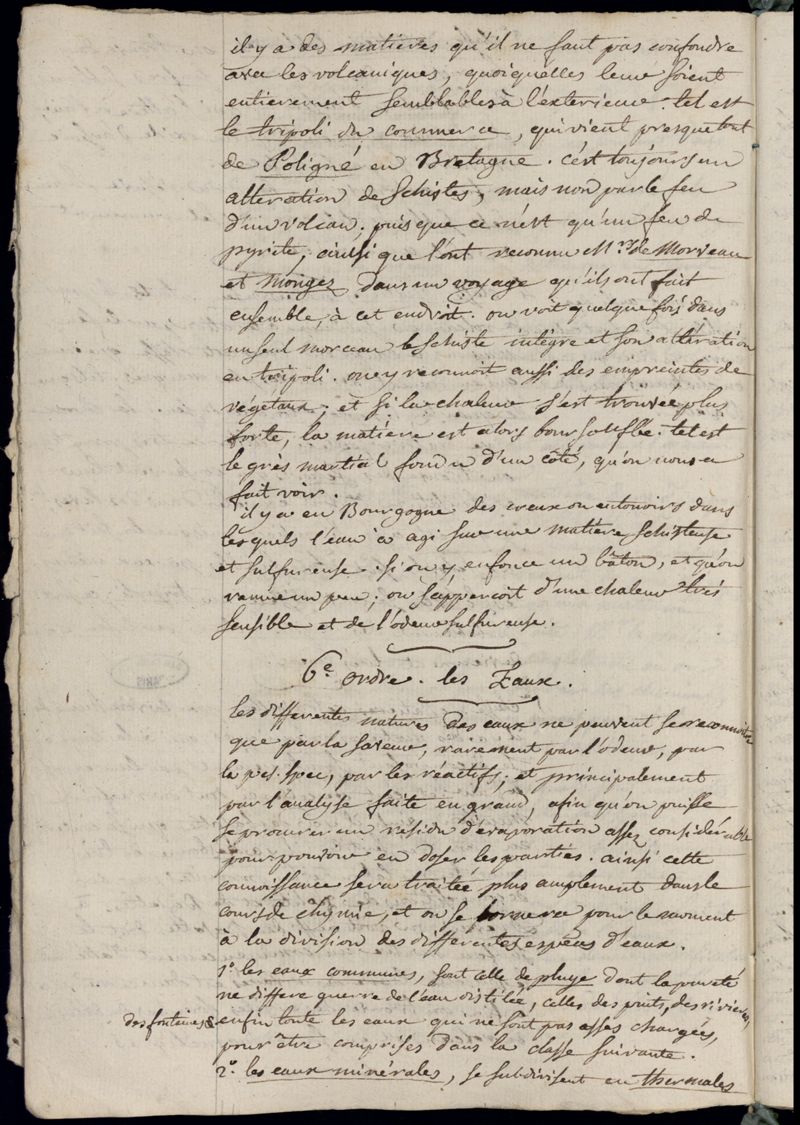 il y a des matieres qu'il ne faut pas confondre
avec les volcaniques, quoiqu'elles leur soient
entierement semblables à l'exterieur. tel est
le tripoli du commerce, qui vient presque tout
de Poligné en Bretagne. c'est toujours un
alteration de schistes, mais non par le feu
d'un volcan, puisque ce n'est qu'un feu de
pyrite, ainsi que l'ont reconnu Mrs de Morveau
et Mongez dans un voyage qu'ils ont fait
ensemble, à cet endroit. on voit quelque fois dans
un seul morceau le schiste intègre et son altération
en tripoli. on y reconnoit aussi des empreintes de
végetaux, et si la chaleur s'est trouvée plus
forte, la matière est alors boursoufflée. tel est
le grès martial fondu d'un côté, qu'on nous a
fait voir.
il y a en Bourgogne des creux ou entonoirs dans
lesquels l'eau a agi sur une matière schisteuse
et sulfureuse. si on y enfonce un bâton, et qu'on
remue un peu, on s'apperçoit d'une chaleur très
sensible et de l'odeur sulfureuse.
6e ordre. les Eaux.
les differentes natures des eaux ne peuvent se reconnoitre
que par la saveur, rarement par l'odeur, par
la pes. spec, par les réactifs, et principalement
par l'analyse faite en grand, afin qu'on puisse
se procurer un résidu d'évaporation assez considérable
pour pouvoir en doser les parties. ainsi cette
connoissance sera traitée plus amplement dans le
cours de chymie, et on se bornera pour le moment
à la division des différentes espèces d'eaux.
1° les eaux communes, sont celle de pluye dont la pureté
ne differe guerre de l'eau distilée, celles des puits, des rivieres,
des fontaines &
enfin toute les eaux qui ne sont pas asses chargées,
pour être comprises dans la classe suivante.
2° les eaux minérales, se subdivisent en thermales